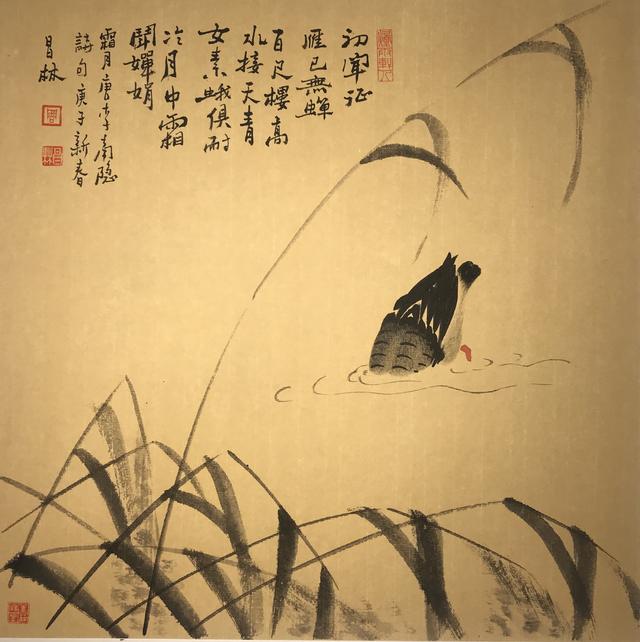 初聞征
雁已無蟬
百尺樓高
水接天青
女素娥俱耐
冷月中霜
鬪嬋娟
霜月唐李商隐
詩句庚子新春
昌林